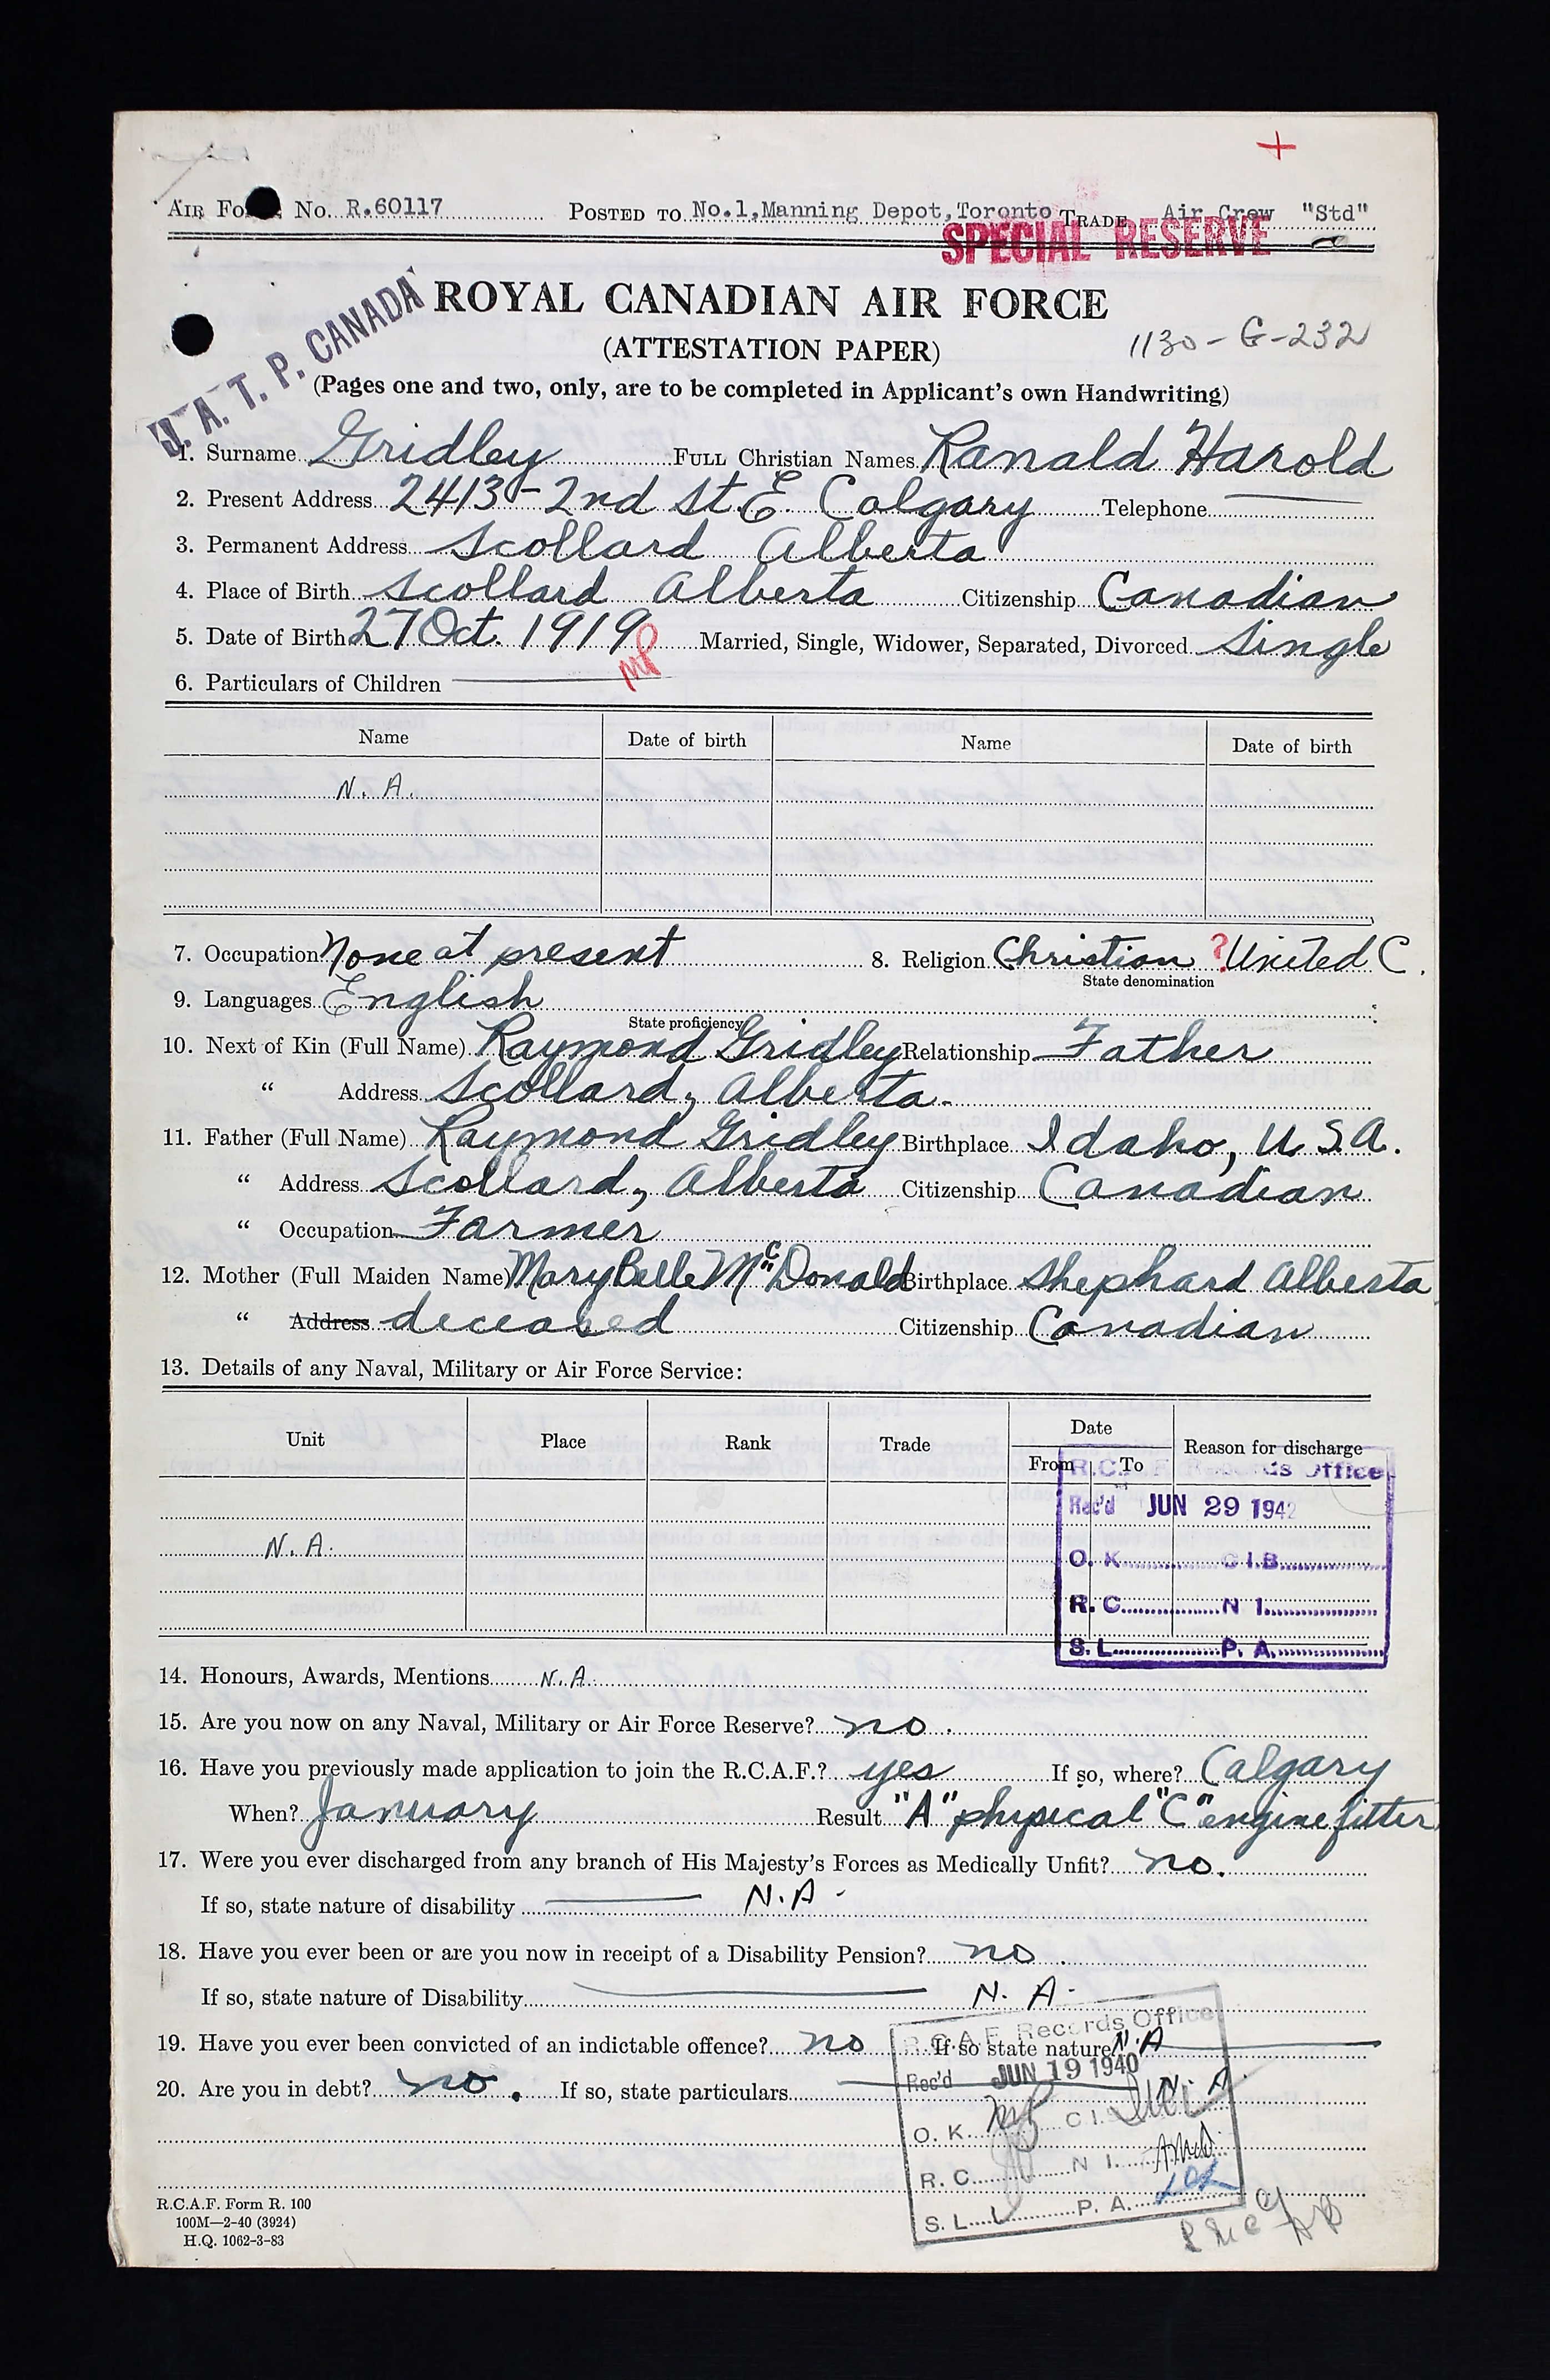 AIR FO No. R.60117 POSTED TO No.1,Manning Depot,Toronto TRADE Air Crew "Std"
SPECIAL RESERVE
J. A. T. P. CANADA
ROYAL CANADIAN AIR FORCE
(ATTESTATION PAPER)
1130-G-232
(Pages one and two, only, are to be completed in Applicant's own Handwriting)
1. Surname Gridley FULL Christian Names Ranald Harold
2. Present Address 2413-2nd St. E. Calgary Telephone
3. Permanent Address Scollard Alberta
4. Place of Birth Scollard Alberta Citizenship Canadian
5. Date of Birth 27 Oct. 1919 Married, Single, Widower, Separated, Divorced Single
6. Particulars of Children
Name Date of birth Name Date of birth
N. A.
7. Occupation None at present 8. Religion Christian ? United C.
State denomination
9. Languages English
State proficiency
10. Next of Kin (Full Name) Raymond Gridley Relationship Father
" Address Scollard, Alberta.
11. Father (Full Name) Raymond Gridley Birthplace Idaho, U.S.A.
" Address Scollard, Alberta Citizenship Canadian
" Occupation Farmer
12. Mother (Full Maiden Name) Mary Belle McDonald Birthplace Shephard Alberta
" Address deceased Citizenship Canadian
13. Details of any Naval, Military or Air Force Service:
Unit Place Rank Trade Date Reason for discharge
From To
R.C. F Records Office
Rec'd JUN 29 1942
N. A.
O. K. C I.B.
R. C. N I.
S. L. P. A.
14. Honours, Awards, Mentions N. A.
15. Are you now on any Naval, Military or Air Force Reserve? no.
16. Have you previously made application to join the R.C.A.F.? yes If so, where? Calgary
When? January Result "A" physical "C" engine fitter
17. Were you ever discharged from any branch of His Majesty's Forces as Medically Unfit? no.
If so, state nature of disability N.A-
18. Have you ever been or are you now in receipt of a Disability Pension? no.
If so, state nature of Disability N. A-
R.C.A.F. Records Office
19. Have you ever been convicted of an indictable offence? no If so state nature N.A
Rec'd JUN 19 1940
20. Are you in debt? no. If so, state particulars N. A.
O. K. C I.
R. C. N I.
S. L. P. A.
R.C.A.F. Form R. 100
100M—2-40 (3924)
H.Q. 1062-3-83